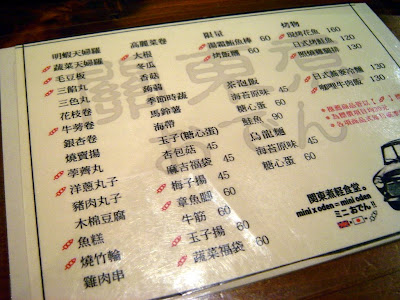 明蝦天婦羅
蔬菜天婦羅
毛豆板
三餡丸
三色丸
花枝卷
牛蒡卷
銀杏卷
燒賣揚
荸薺丸
洋蔥丸子
豬肉丸子
木棉豆腐
魚糕
燒竹輪
雞肉串
高麗菜卷
大根
冬瓜
香菇
蒟蒻
季節時蔬
馬鈴薯
海帶
玉子(糖心蛋)
杏包菇 45
麻吉福袋 45
梅子揚 45
章魚腳 60
牛筋 90
玉子揚 60
蔬菜福袋 60
限量
鮪魚棒 60
烤飯糰 60
茶泡飯
海苔原味 45
糖心蛋 60
鮭魚 90
烏龍麵
海苔原味 45
糖心蛋 60
烤物
現烤花魚 160
日式烤鮭魚 130
照燒雞腿排 120
日式蕎麥冷麵 130
咖哩牛肉飯 130
關東煮
おでん
關東煮軽食堂。
mini x oden = mini oden
ミニおでん!!